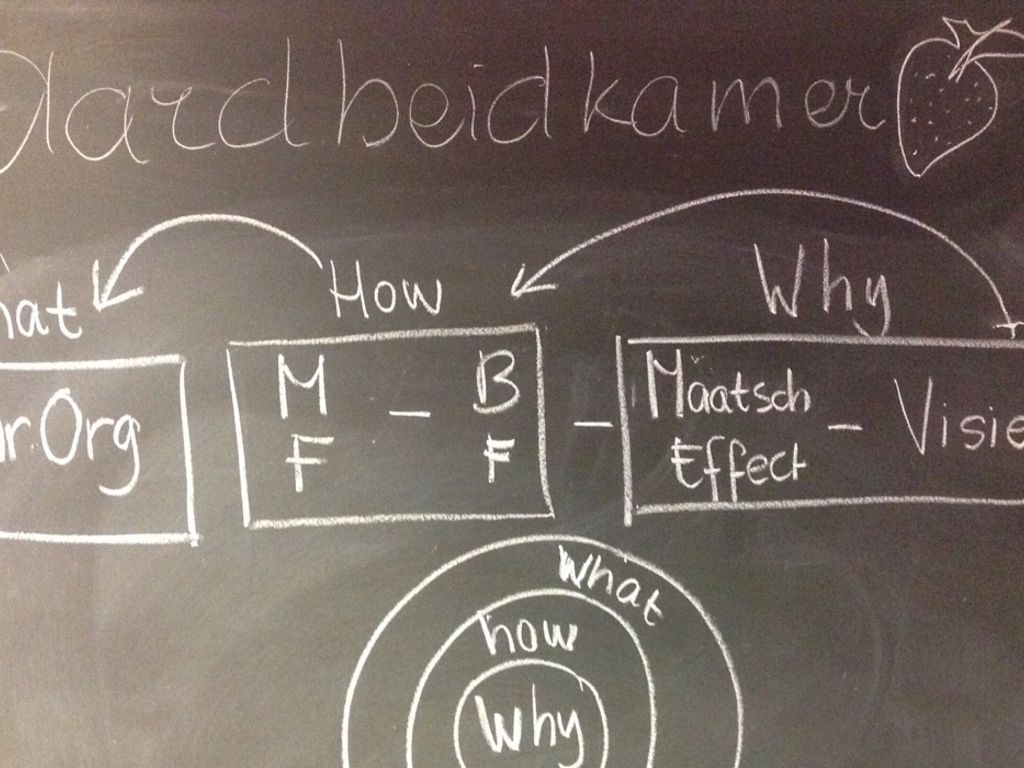 Aardbeidkamer
hat How Why
r.Org M - B - Maatsch - Visie
F F Effect
What
how
Why